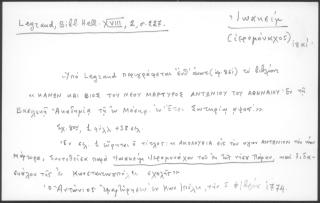 Legrand, Bibl. Hell. XVIII, 2, σ. 228.
Ἰωακείμ
(ἱερομόναχος)
Ὑπὸ Legrand περιγράφεται ὑπ' ἀριθ. τὸ βιβλίον
« ΚΑΝΩΝ ΚΑΙ ΒΙΟΣ ΤΟΥ ΝΕΟΥ ΜΑΡΤΥΡΟΣ ΑΝΤΩΝΙΟΥ ΤΟΥ ΑΘΗΝΑΙΟΥ. Ἐν τῇ
Ἀκαδημίᾳ τῇ ἐν Μόσχᾳ. Ἐν Ἔτει Σωτηρίῳ
Σχ. 8ον, 1 φύλλ. + 38 σελ.
Ἐν σελ. 1 ὁ τίτλος: « ΑΚΟΛΟΥΘΙΑ εἰς τὸν νέον ΑΝΤΩΝΙΟΝ τὸν νέον
Μάρτυρα, Συντεθεῖσα παρὰ Ἰωακεὶμ Ἱερομονάχου τοῦ ἐκ τῆς νήσου Πάρου, καὶ διδα-
σκάλου τῆς ἐν Κωνσταντινουπόλει σχολῆς »
Ὁ Ἀντώνιος ἐμαρτύρησεν ἐν Κων/πόλει, τὴν 5 Φεβρ. 1774.